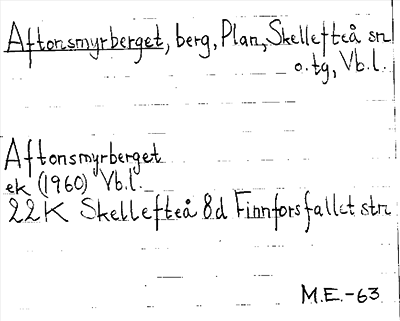 Aftonsmyrberget, berg, Plan, Skellefteå sn
o. tg, Vb.l.
Aftonsmyrberget
ek (1960) Vb.l.
22K Skellefteå 8d Finnforsfallet str
M.E.-63